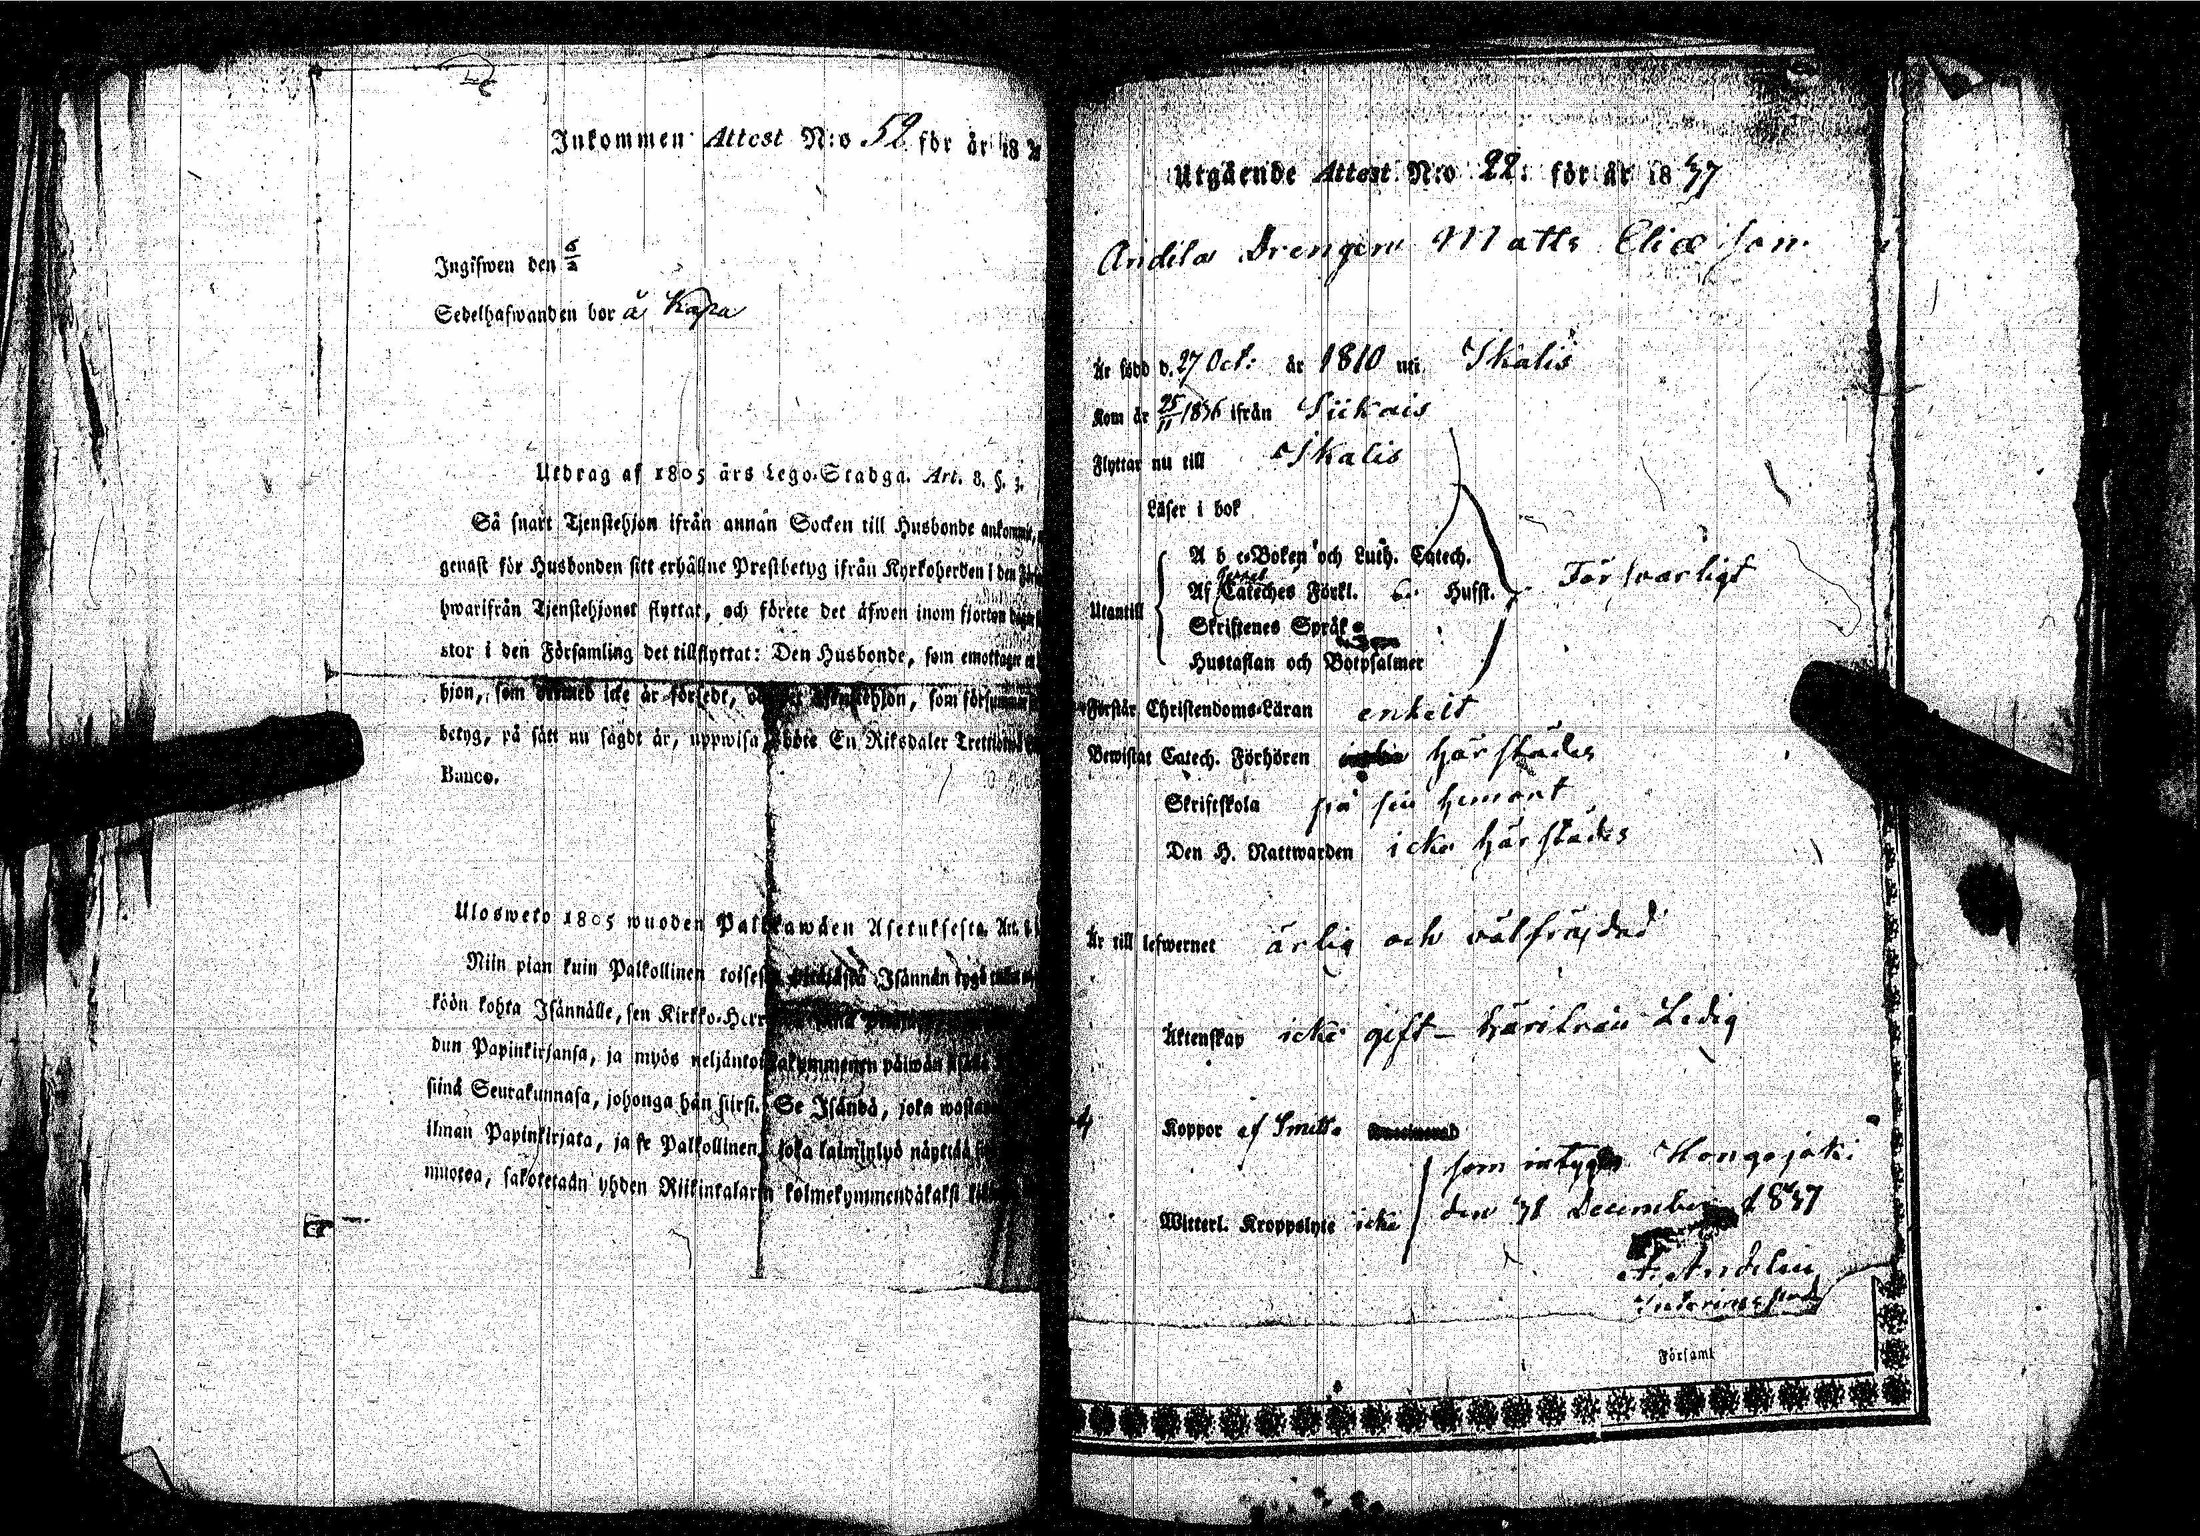 Inkommen Attest N:o 52 för år 18
Ingifwen den 6/2
Sedelhafwanden bor å Kapa
Utdrag af 1805 års Lego-Stadga. Art. 8. §. 3.
Så snart Tjenstehjon ifrån annan Socken till Husbonde ankommit,
genast för Husbonden sitt erhållne Prestbetyg ifrån Kyrkoherden i den
hwarifrån Tjenstehjonet flyttat, och förete det äfwen inom fjorton
stor i den Församling det tillflyttat: Den Husbonde, som emottager
hjon, som dermed icke är försedt, Tjenstehjon, som försummar
betyg, på sätt nu sagdt är, uppwisa böte En Riksdaler Trettiotwå
Banco.
Ulosweto 1805 wuoden Palkkawäen Asetuksesta. Art. 8.
Niin pian kuin Palkollinen toisesta pitäjästä Isännän tygö
köön kohta Isännälle, sen Kirkko-Herr
dun Papinkirjansa, ja myös neljäntoistakymmenen päiwän
siinä Seurakunnasa, johonga hän siirst. Se Isändä, joka
ilman Papinkirjata, ja se Palkollinen, joka laiminlyö näyttää
muotoa, sakotetaan yhden Riikinkalarin kolmekymmendäkaksi
Utgående Attest N:o 22: för år 1837
Drengen Matts Eliæsson.
Är född d. 27 Oct: år 1810 uti Ikalis
Kom år 25/11 1836 ifrån Siikais
Flyttar nu till Ikalis
Läser i bok
A b c-Boken och Luth. Catech.
Af Cateches Förkl. Husst. Försvarligt
Utantill
Skriftenes Språk
Hustaflan och Botpsalmer
Förstår Christendoms-Läran enkelt
Bewistat Catech. Förhören härstädes
Skriftskola på sin hemort
Den H. Nattwarden icke härstädes
Är till lefwernet ärlig och välfräjdad
Äktenskap icke gift – härifrån Ledig
Koppor af Smitta
som intygas Hongojoki
Witterl. Kroppslyte icke den 31 December 1837
Andelin
Församl